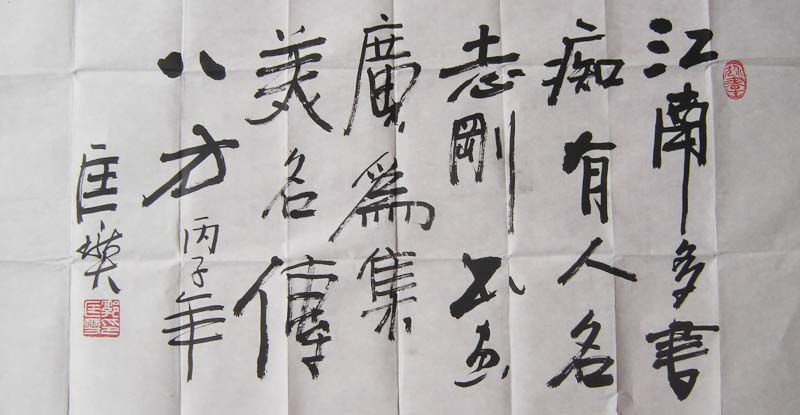 江南多書
痴有人名
志剛書畫
廣為集
美名傳
八方
丙子年
匡燮